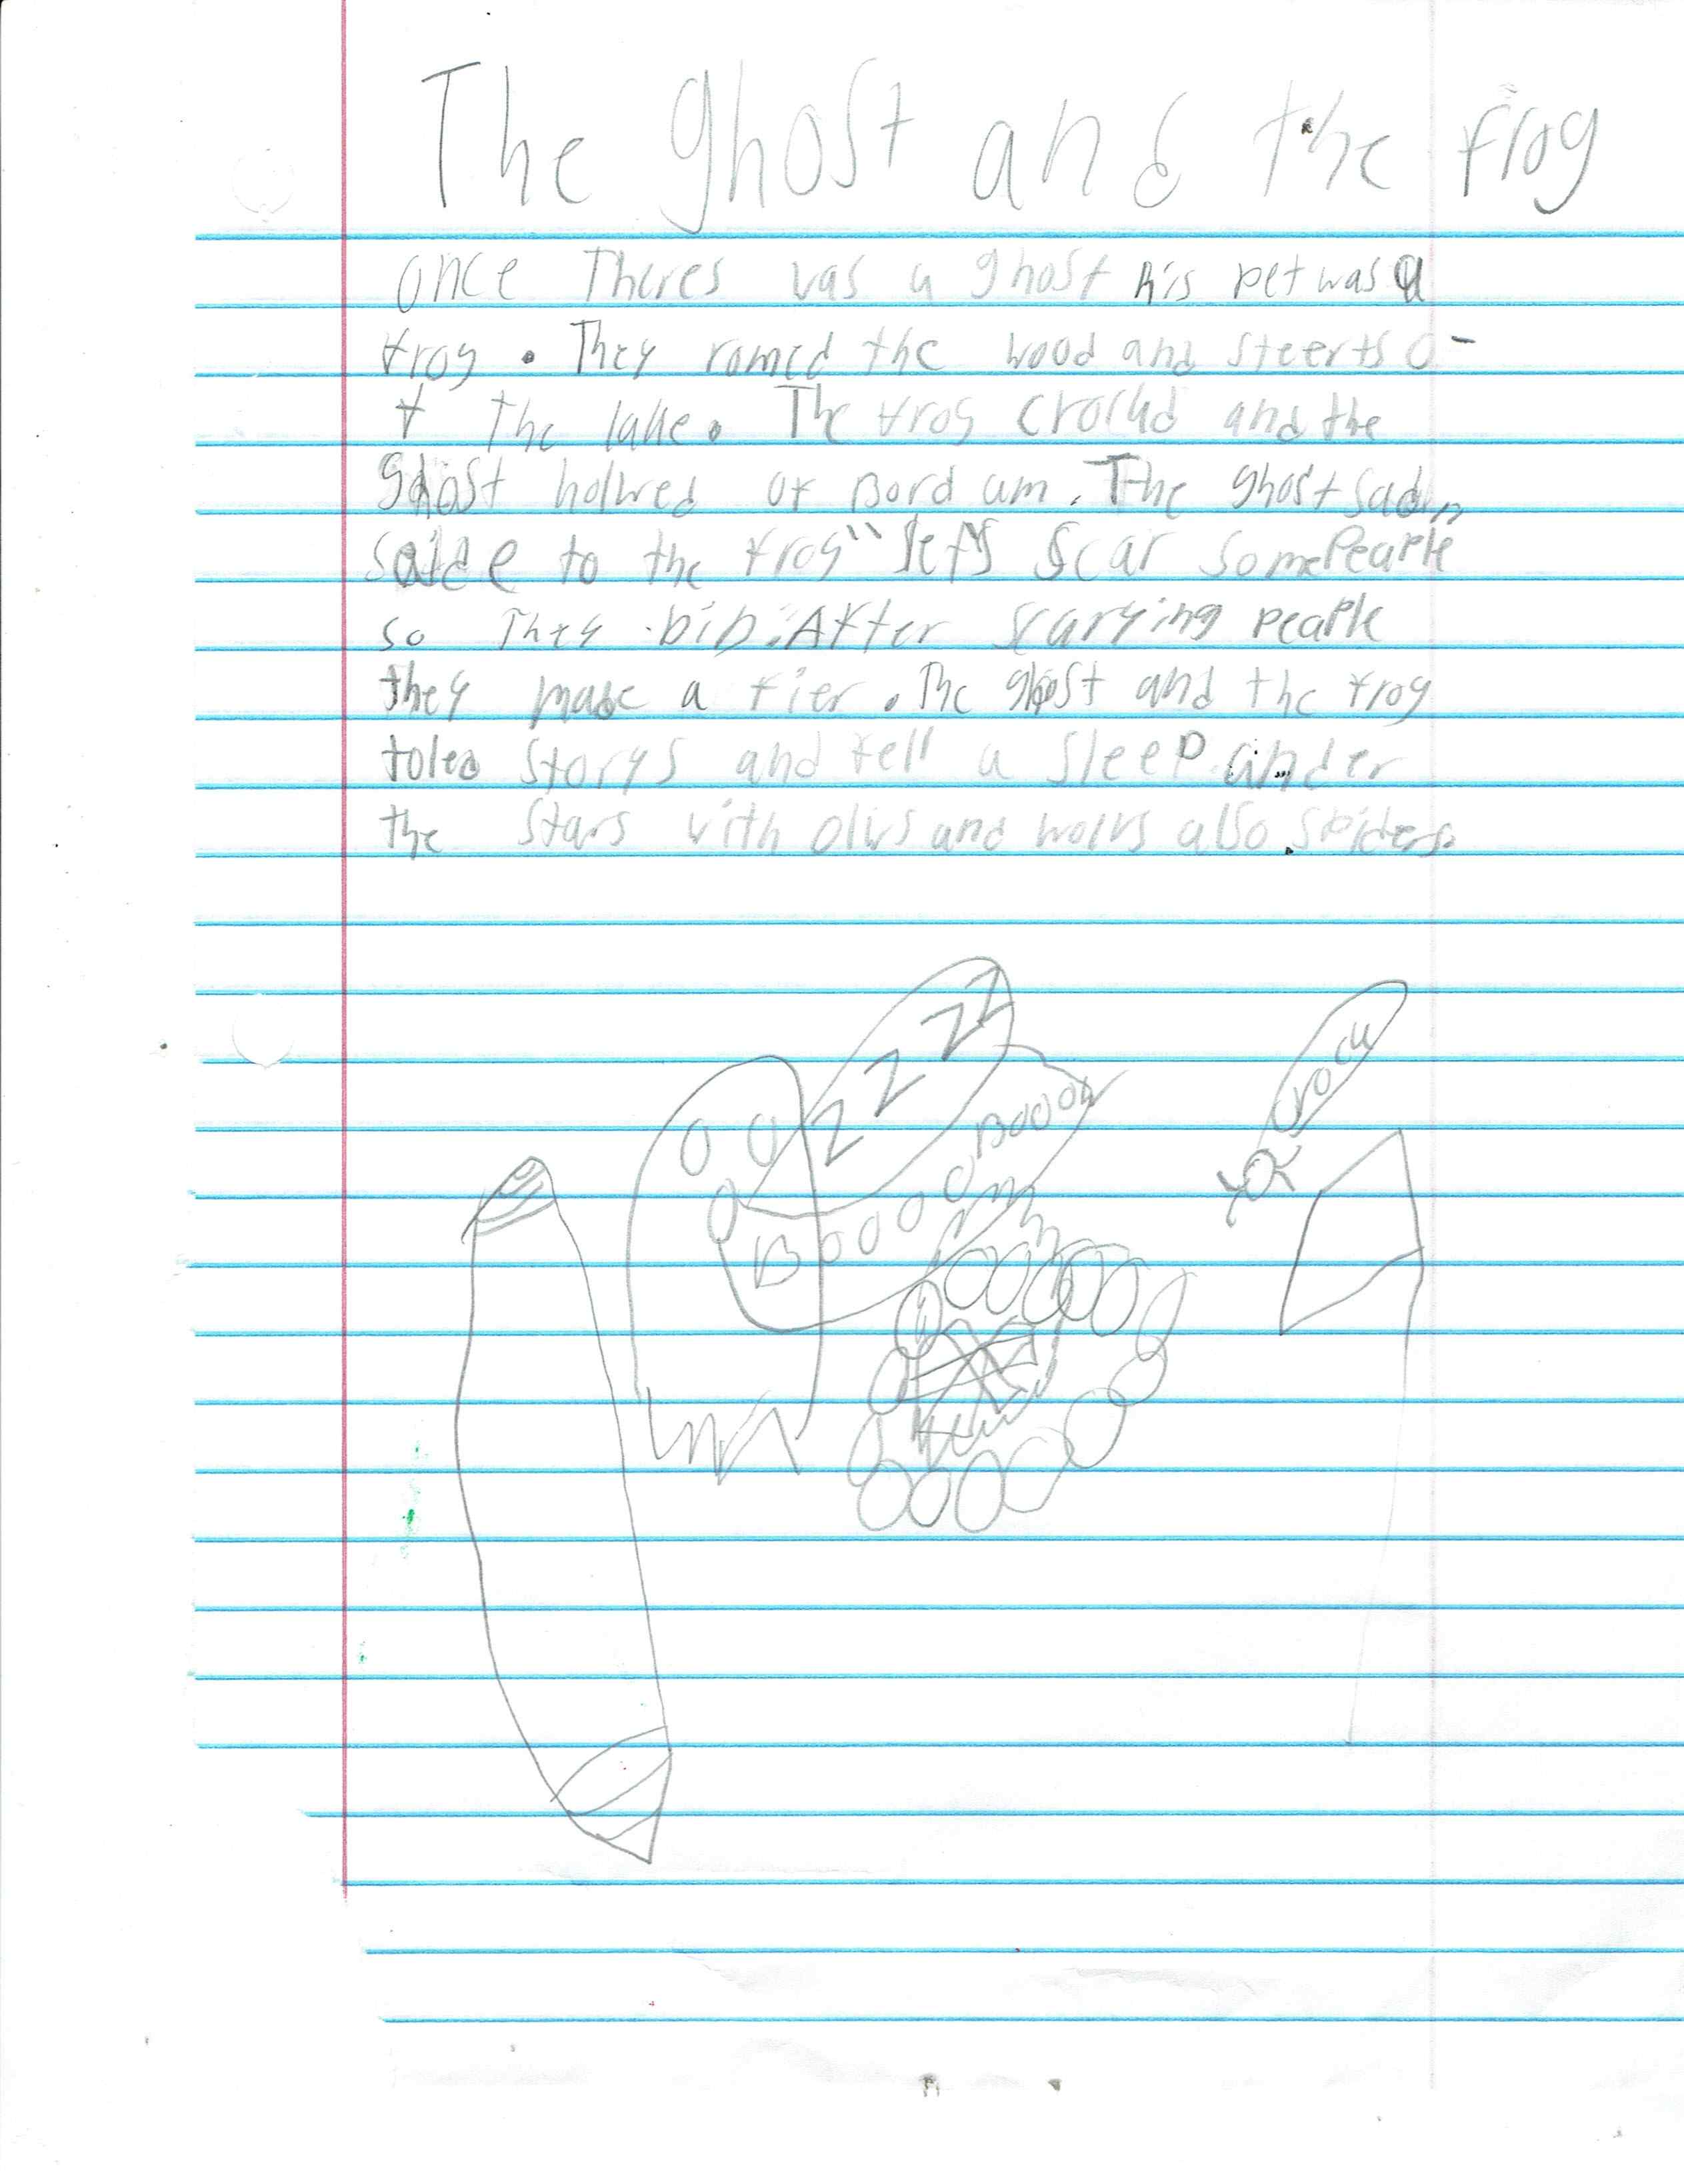 The ghost and the frog
once Theres was a ghost his pet was a
frog. They romed the wood and steerts o-
f the lake. The frog crokd and the
ghost holwed of Bord um. The ghost sadn
saide to the frog" lets scar some Peaple
so They did. After scarying peaple
they made a fier. The ghost and the frog
toled storys and fell a sleep under
the stars with olws and wolvs also spiders.
ZZZZ
Boooo Booooo
Crock